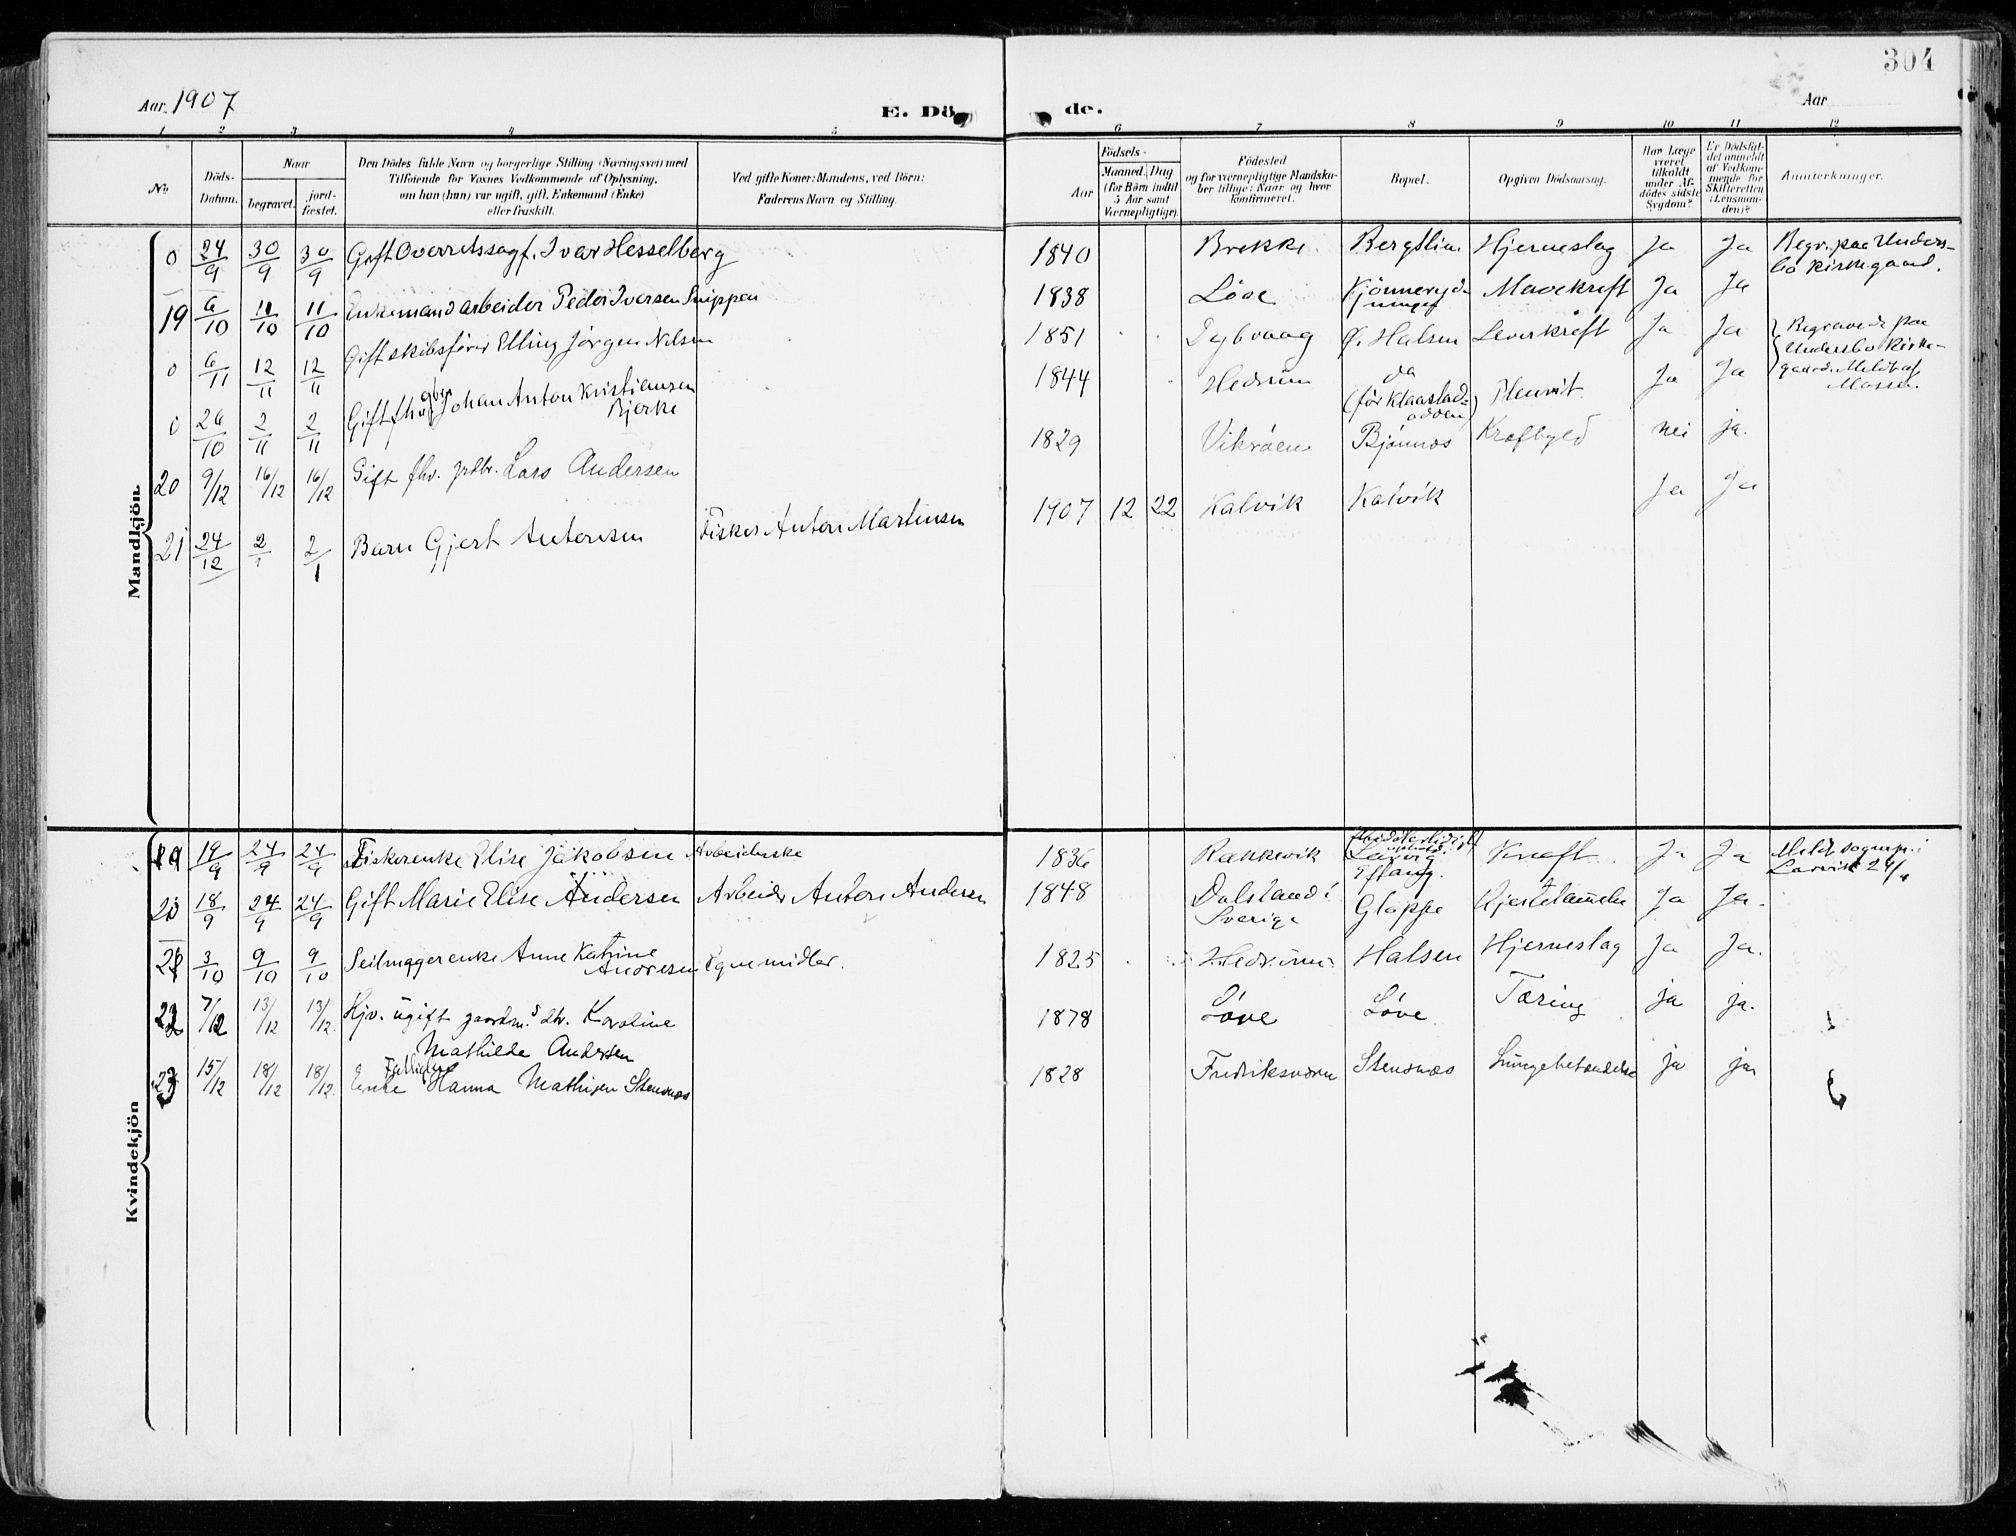 304
Aar 1907
E. Dö
de.
Aar
1 2 3 4 5 6 7 8 9 10 11 12
No
Döds-Datum.
Naar
begravet.
jord-fæstet.
Den Dödes fulde Navn og borgerlige Stilling (Næringsvei) med
Tilföiende for Voxnes Vedkommende af Oplysning,
om han (hun) var ugift, gift, Enkemand (Enke)
eller fraskilt.
Ved gifte Koner: Mandens, ved Börn:
Faderens Navn og Stilling.
Födsels-
Aar
Maaned. Dag.
(for Börn indtil
5 Aar samt
Værnepligtige).
Födested
og for værnepligtige Mandska-
ber tillige: Naar og hvor
konfirmeret.
Bopæl.
Opgiven Dödsaarsag.
Har Læge
været
tilkaldt
under Af-
dödes sidste
Sygdom?
Er Dödsfal-
det anmeldt
af Vedkom-
mende for
Skifteretten
(Lensman-
den)?
Anmærkninger.
Mandkjön.
0 24/9 30/9 30/9 Gift Overretssagf. Ivar Hesselberg 1840 Brekke Bergslien Hjerneslag Ja Ja Begr. paa Unders-
bo Kirkegaard.
19 6/10 11/10 11/10 Enkemand arbeider Peder Iversen Snippen 1838 Löve Mavekreft Ja Ja
0 6/11 12/11 12/11 Gift skibsförer Elling Jörgen Nilsen 1851 Dybvaag Ö. Halsen Leverkreft Ja Ja Begravede paa
Undersbo Kirke-
gaard. Meldt af
0 26/10 2/11 2/11 Gift fhv. Johan Anton Kristiansen
Bjerke 1844 Hedrum da
(för Klaastad-
odden) Plevrit Ja Ja
20 9/12 16/12 16/12 Gift fhv. grdbr. Lars Andersen 1829 Vikröen Bjönnes nei ja.
21 24/12 2/1 2/1 Barn Gjert Antonsen Fisker Anton Martinsen 1907 12 22 Kalvik Kalvik Ja Ja
Kvindekjön
19 19/9 24/9 24/9 Fiskerenke Elise Jakobsen Arbeiderske 1836 Rækkevik
Eftang. Kreft Ja Ja Meldt sognepr. i
Larvik 24/9
20 18/9 24/9 24/9 Gift Marie Elise Andersen Arbeider Anton Andersen 1848 Dalsland i
Sverige Gloppe Hjertelammelse Ja Ja.
21 3/10 9/10 9/10 Seilmagerenke Anne Katrine
Andresen Egne midler. 1825 Hedrum Halsen Hjerneslag Ja Ja.
22 7/12 13/12 13/12 Hjv. ugift gaardm.s dtr. Karoline
Mathilde Andersen 1878 Löve Löve Tæring ja ja.
23 15/12 18/12 18/12 Enke Hanna Mathisen Stensnæs 1828 Fredriksværn Stensnæs Lungebetændelse ja ja